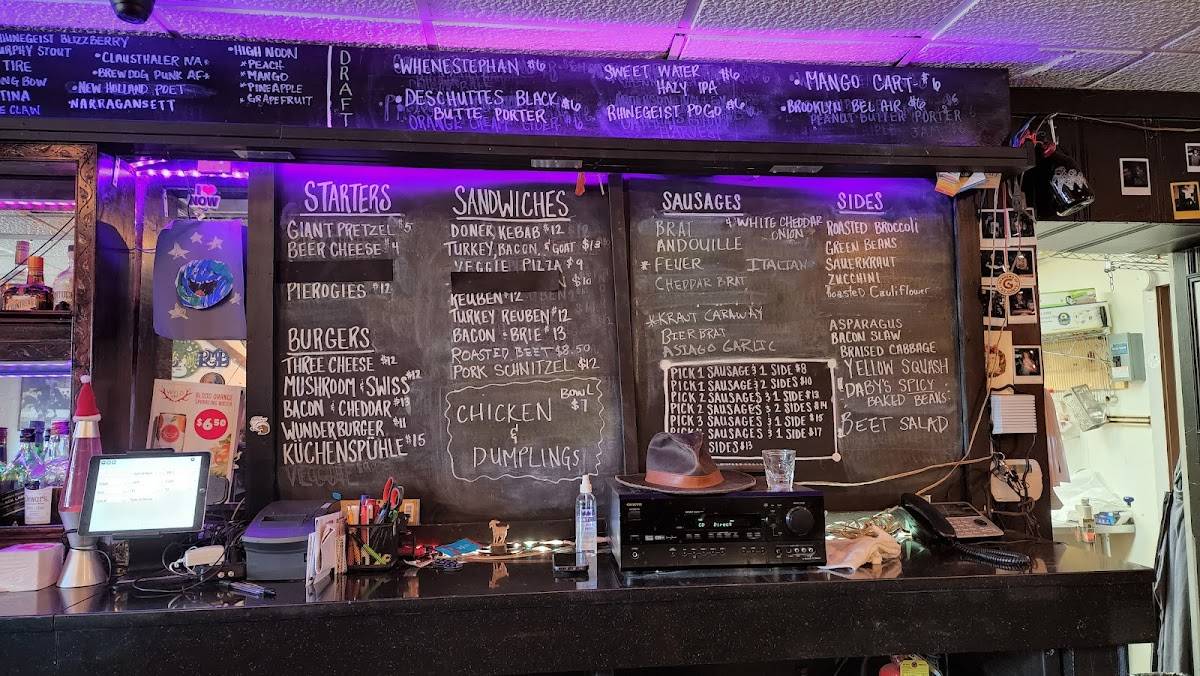 RHINEGEIST BLIZZBERRY
MURPHY STOUT
TIRE
BOW
CLAW
•CLAUSTHALER NA•
•BREWDOG PUNK AF•
•NEW HOLLAND POET
NARRAGANSETT
•HIGH NOON
*PEACH
*MANGO
*PINEAPPLE
*GRAPEFRUIT
DRAFT
•WHENESTEPHAN $6
•DESCHUTTES BLACK $6
BUTTE PORTER
SWEET WATER $6
HAZY IPA
RHINEGEIST POGO $6
•MANGO CART $6
•BROOKLYN BEL AIR $6
PEANUT BUTTER PORTER
STARTERS
GIANT PRETZEL $5
BEER CHEESE $4
PIEROGIES $12
BURGERS
THREE CHEESE $12
MUSHROOM & SWISS $12
BACON & CHEDDAR $13
WUNDERBURGER $11
KUCHENSPÜHLE $15
VEGGIE
SANDWICHES
DONER KEBAB $12
TURKEY, BACON, & GOAT $13
VEGGIE PIZZA $9
$10
REUBEN $12
TURKEY REUBEN $12
BACON & BRIE $13
ROASTED BEET $8.50
PORK SCHNITZEL $12
CHICKEN
&
DUMPLINGS
BOWL
$7
SAUSAGES
BRAT
ANDOUILLE
* FEUER
CHEDDAR BRAT
WHITE CHEDDAR
ONION
ITALIAN
*KRAUT CARAWAY
BIER BRAT
ASIAGO GARLIC
PICK 1 SAUSAGE & 1 SIDE $8
PICK 1 SAUSAGE & 2 SIDES $10
PICK 2 SAUSAGES & 1 SIDE $13
PICK 2 SAUSAGES & 2 SIDES $14
PICK 3 SAUSAGES & 1 SIDE $15
SAUSAGES & 1 SIDE $17
SIDES $13
SIDES
ROASTED BROCCOLI
GREEN BEANS
SAUERKRAUT
ZUCCHINI
Roasted Cauliflower
ASPARAGUS
BACON SLAW
BRAISED CABBAGE
YELLOW SQUASH
"DABY'S SPICY
BAKED BEANS"
BEET SALAD
I ♥
NOW
BLOOD ORANGE
$6.50
ONKYO
CD Direct
G